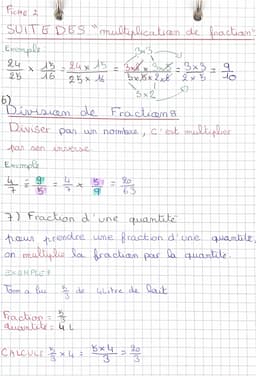 Fiche 2
SUITE DES "multiplication de fraction"
Exemple
3x3
24/25 x 15/16 = 24 x 15 / 25 x 16 = = 3x3 / 2x5 = 9/10
5x2
6)
Division de Fractions
Diviser par un nombre, c'est multiplier
par son inverse
Exemple
4/7 ÷ 9/5 = 4/7 x 5/9 = 20/63
7) Fraction d'une quantité
pour prendre une fraction d'une quantité,
on multiplie la fraction par la quantité.
EXEMPLE
Tom a bu 5/3 de 4 Litre de lait
Fraction = 5/3
quantité = 4 L
CALCULE 5/3 x 4 = 5x4/3 = 20/3